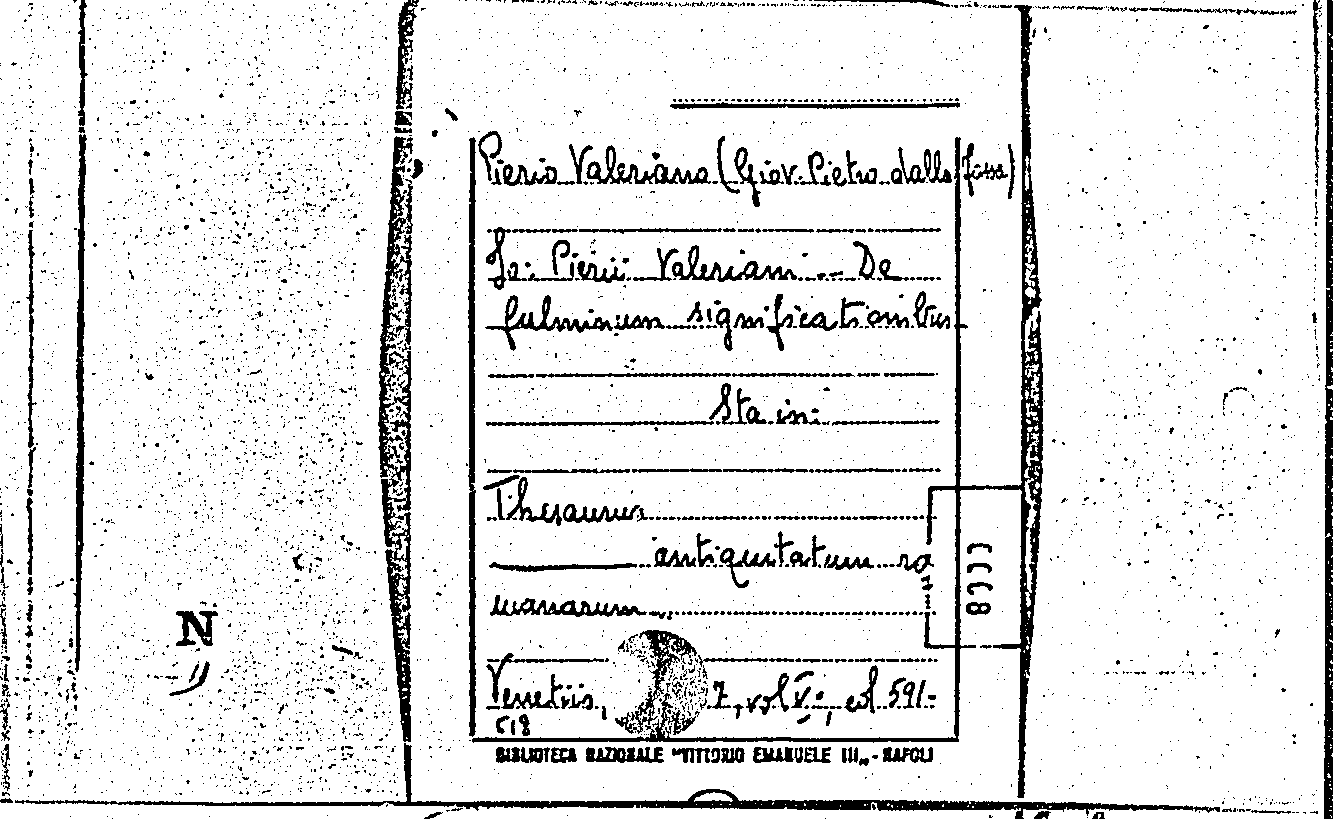 Pierio Valeriano (Giov. Pietro dalla fossa)
Jo: Pierii Valeriani -- De
fulminum significationibus
Sta in:
Thesaurus
antiquitatum ro
manarum
N
Venetiis, 7, vol V°, col 591-
618
BIBLIOTECA NAZIONALE "VITTORIO EMANUELE III„ - NAPOLI